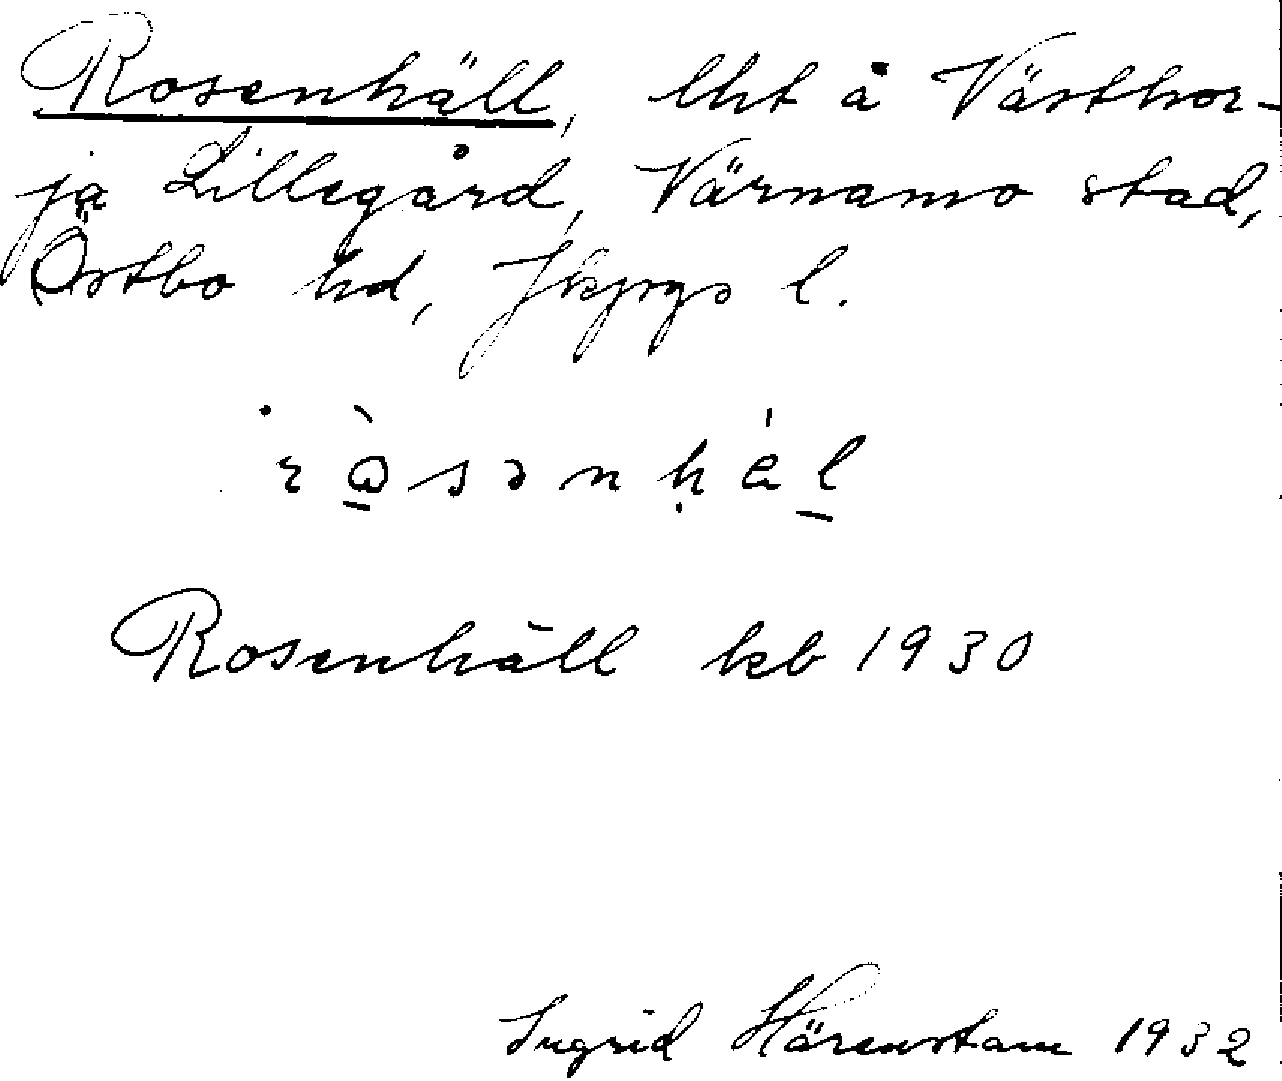 Rosenhäll, lht å Västhor-
ja Lillegård, Värnamo stad,
Östbo hd, Jkpgs l.
Rosenhäll kb 1930
Ingrid Härenstam 1932